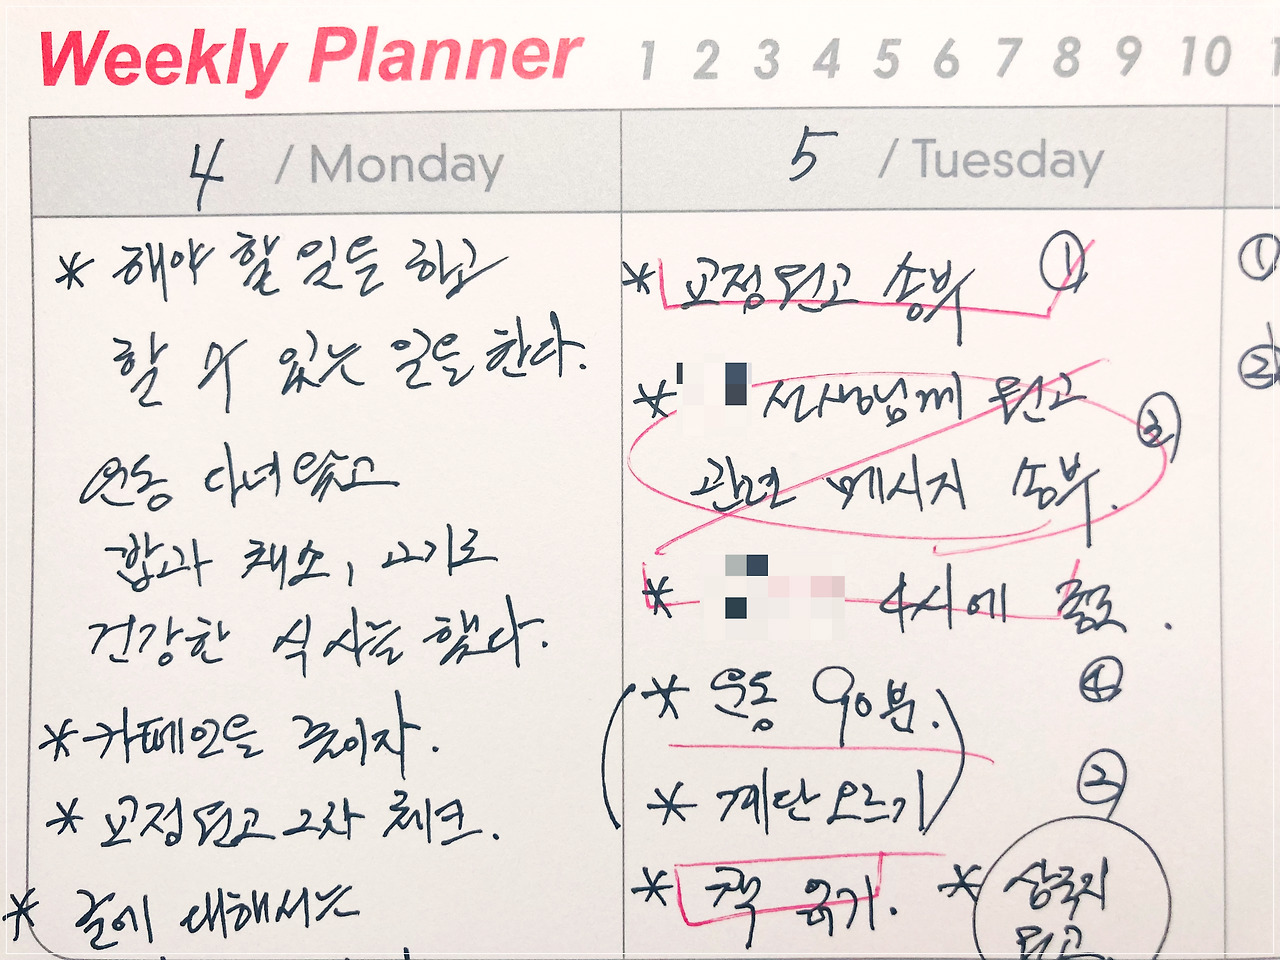 Weekly Planner 1 2 3 4 5 6 7 8 9 10
4 / Monday
* 해야 할 일들을 하고
할 수 있는 일들을 한다.
운동 다녀왔고
밥과 채소, 고기로
건강한 식사를 했다.
* 카페인을 줄이자.
* 교정원고 2차 체크.
* 글에 대해서는
5 / Tuesday
* 교정원고 송부 ①
* 선생님께 원고
관련 메시지 송부. ③
* 4시에 줌으로.
④
* 운동 90분.
* 계단오르기
②
* 책 읽기.
* 삼국지
원고
①
②